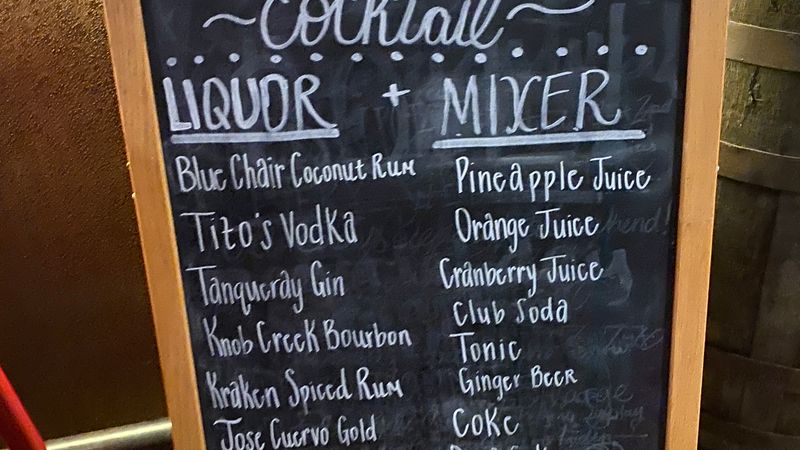 ~ Cocktail ~
LIQUOR + MIXER
Blue Chair Coconut Rum Pineapple Juice
Tito's Vodka Orange Juice
Tanqueray Gin Cranberry Juice
Club Soda
Knob Creek Bourbon Tonic
Kraken Spiced Rum Ginger Beer
Jose Cuervo Gold Coke